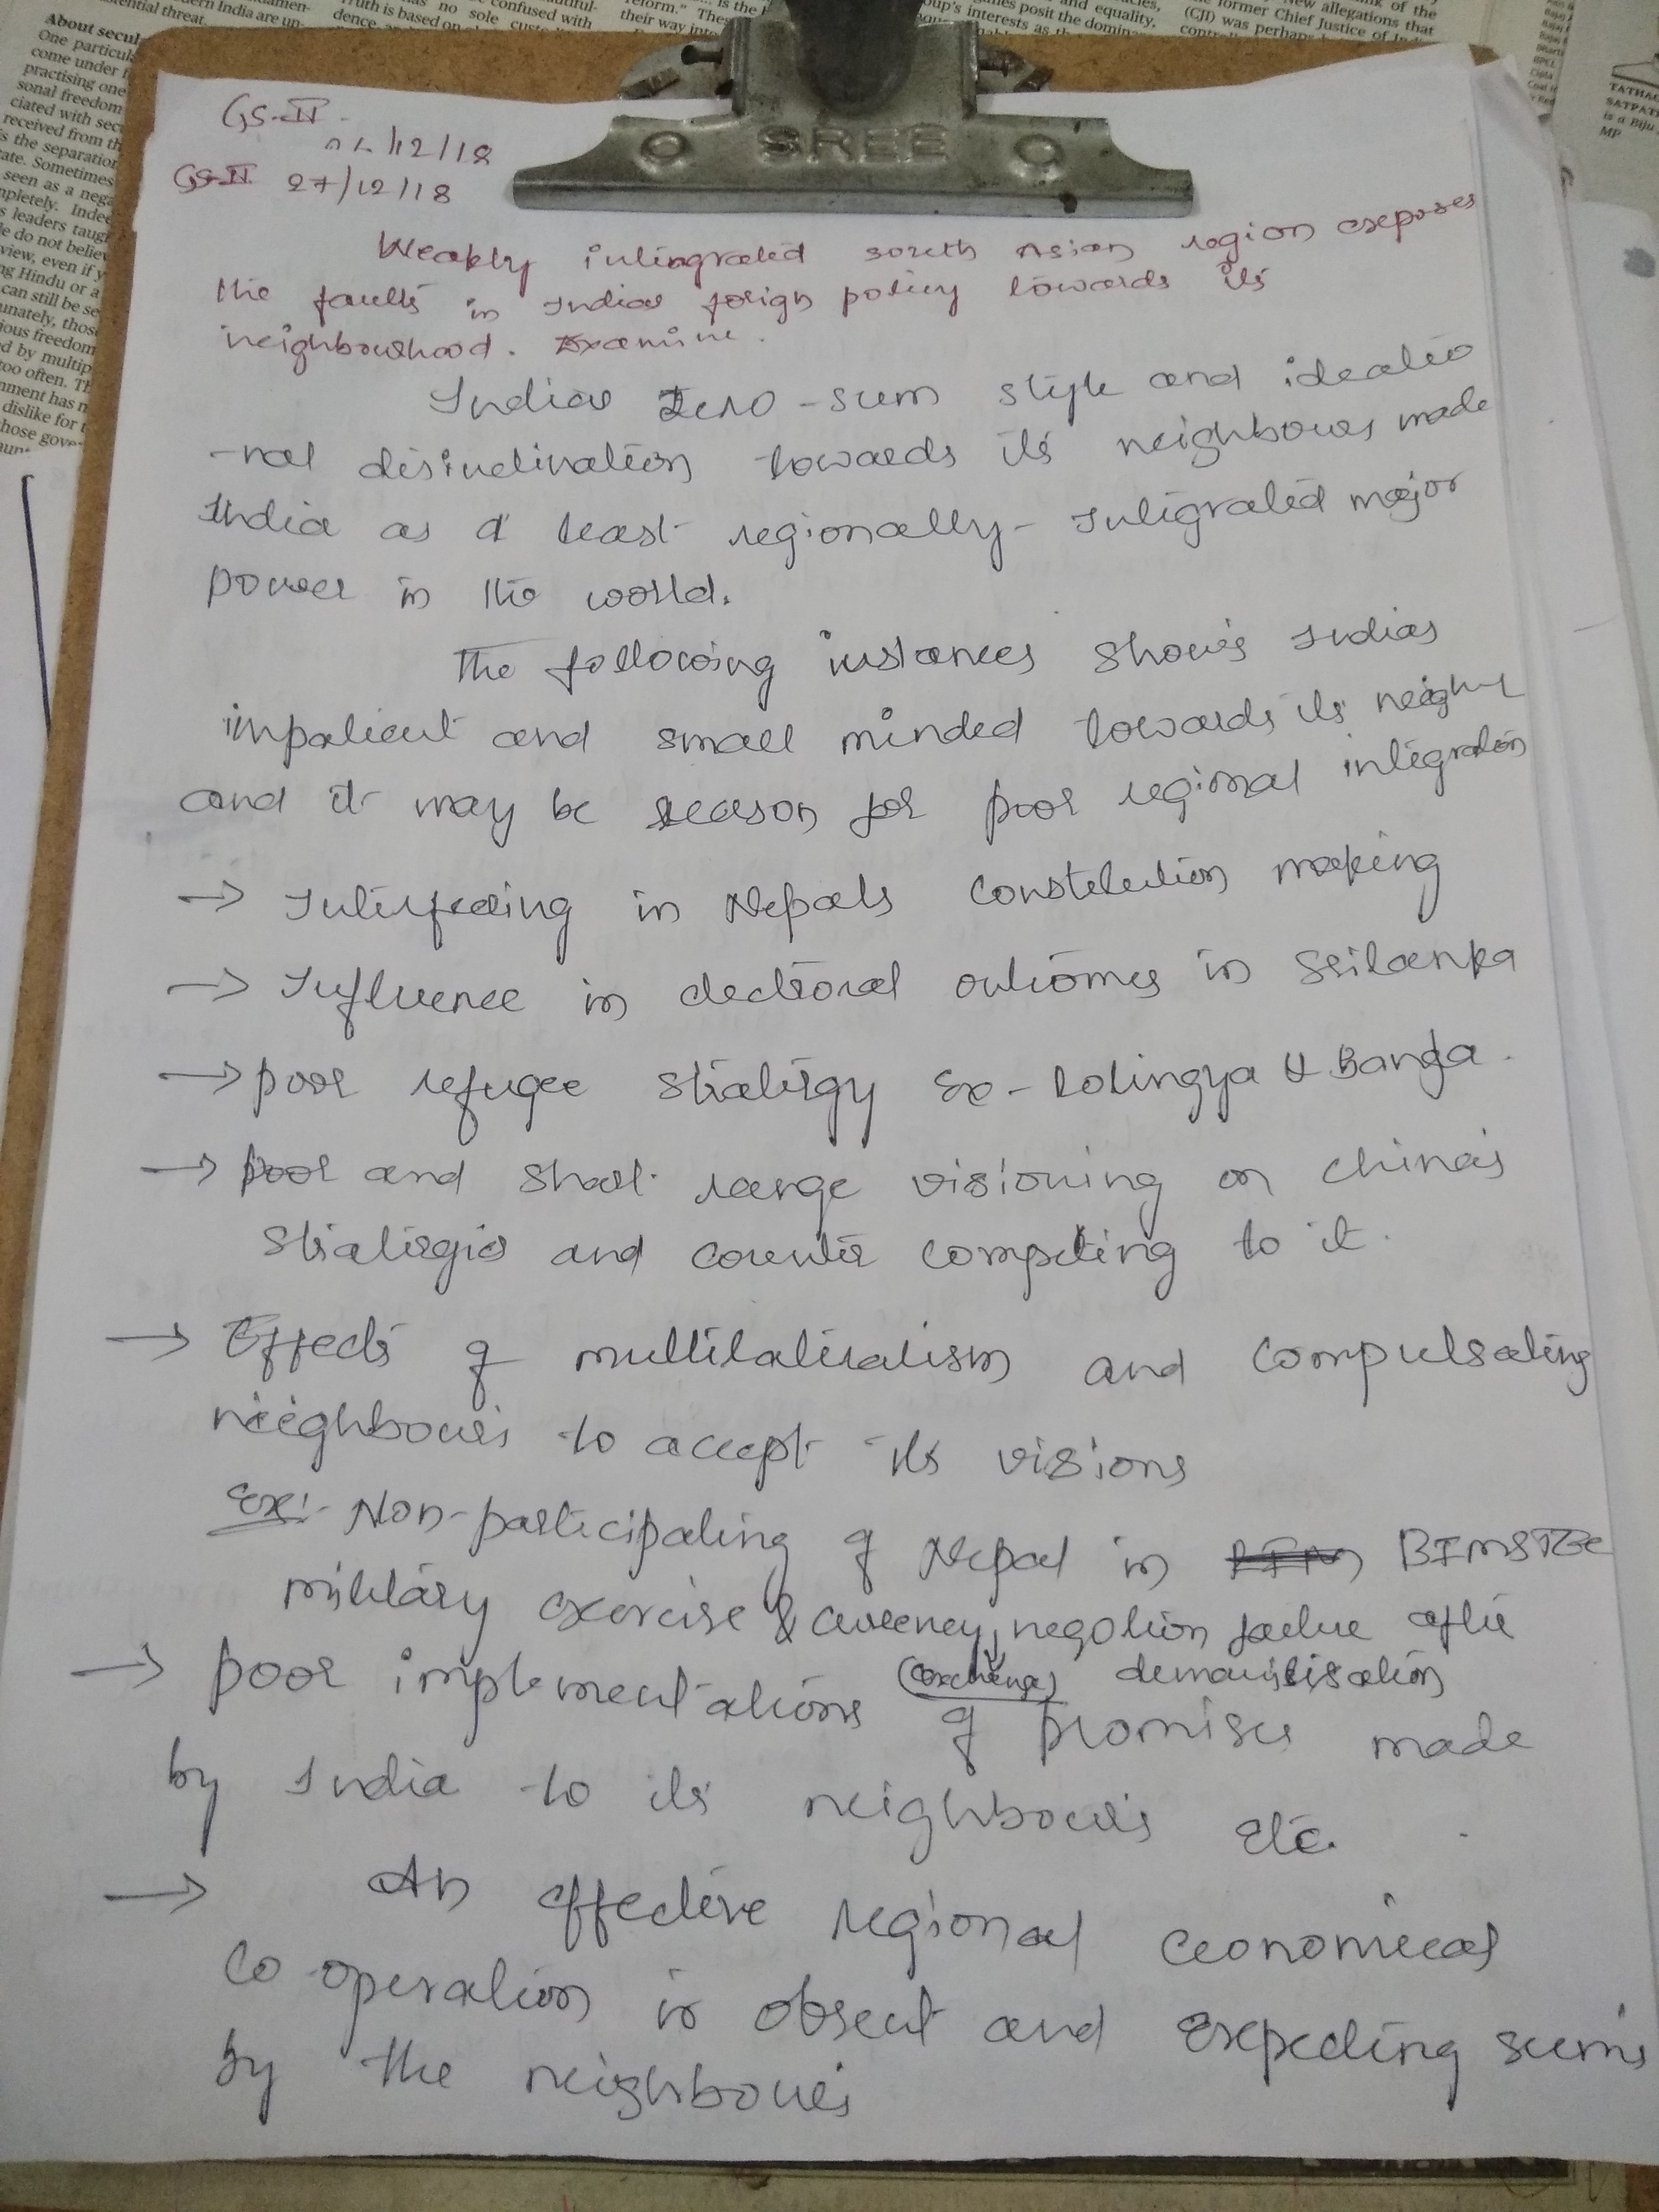 About secul
One particul
come under
practising one
sonal freedom
ciated with sec
received from th
s the separation
ate. Sometimes
seen as a nega
pletely. Indee
s leaders taugh
e do not believ
view, even if y
ng Hindu or a
can still be se
unately, those
ious freedom
d by multip
too often. Th
nment has n
dislike for t
hose gove
SREE
GS-II
/12/18
GS-II 27/12/18
Weakly intingrated south Asian region exposes
the faults in Indias forign policy towards its
neighbourhood. Examine.
Indias Zero-sum style and ideatio
-nal disinclination towards its neighbours made
India as a least regionally-Integrated major
power in the world.
The following instances shows Indias
impatient and small minded towards its
and it may be reason for poor regional integration
→ Interfering in Nepals constitution making
→ Influence in electroral outcomes in Srilanka
→ poor refugee stratergy Ex- Rohingya & Bangla.
→ poor and short range visioning on china's
stratergies and counter competing to it.
→ Effects of multilateralism and compulsating
neighbours to accept its visions
Ex:- Non-participating of Nepal in BIMSTEC
military exercise & currency negotion failure after
(exchange) demonitisation
→ poor implementations of promises made
by India to its neighbours etc.
→ An effective regional economical
co-operation is absent and Expecting seems
by the neighbours